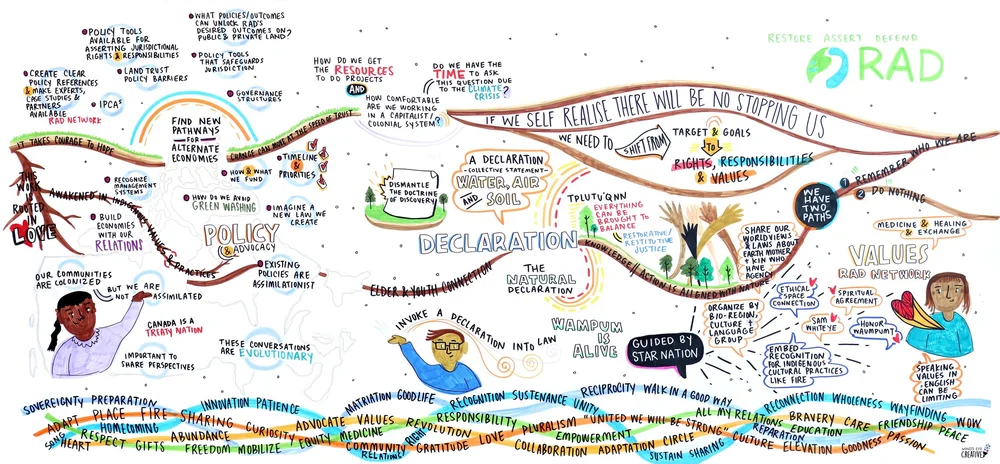 RESTORE ASSERT DEFEND
RAD
WHAT POLICIES/OUTCOMES
CAN UNLOCK RAD'S
DESIRED OUTCOMES ON
PUBLIC & PRIVATE LAND?
POLICY TOOLS
AVAILABLE FOR
ASSERTING JURISDICTIONAL
RIGHTS & RESPONSIBILITIES
POLICY TOOLS
THAT SAFEGUARDS
JURISDICTION
CREATE CLEAR
POLICY REFERENCES
& MAKE EXPERTS,
CASE STUDIES &
PARTNERS
AVAILABLE
RAD NETWORK
LAND TRUST
POLICY BARRIERS
IPCAS
GOVERNANCE
STRUCTURES
FIND NEW
PATHWAYS
FOR
ALTERNATE
ECONOMIES
IT TAKES COURAGE TO HOPE
CHANGE CAN MOVE AT THE SPEED OF TRUST
HOW DO WE GET
THE RESOURCES
TO DO PROJECTS
AND
HOW COMFORTABLE
ARE WE WORKING
IN A CAPITALIST/
COLONIAL SYSTEM?
DO WE HAVE THE
TIME TO ASK
THIS QUESTION DUE
TO THE CLIMATE
CRISIS?
IF WE SELF REALISE THERE WILL BE NO STOPPING US
WE NEED TO
SHIFT FROM
TARGET &
GOALS
TO
RIGHTS, RESPONSIBILITIES
& VALUES
1 REMEMBER WHO WE ARE
2 DO NOTHING
WE
HAVE
TWO
PATHS
THIS
WORK
IS
ROOTED
IN
LOVE
AWAKENED IN INDIGENOUS VALUES & PRACTICES
RECOGNIZE
MANAGEMENT
SYSTEMS
BUILD
ECONOMIES
WITH OUR
RELATIONS
HOW & WHAT
WE FUND
TIMELINE
&
PRIORITIES
HOW DO WE AVOID
GREEN WASHING
IMAGINE A
NEW LAW WE
CREATE
POLICY
& ADVOCACY
EXISTING
POLICIES ARE
ASSIMILATIONIST
DISMANTLE
THE DOCTRINE
OF DISCOVERY
A DECLARATION
-COLLECTIVE STATEMENT-
WATER, AIR
AND SOIL
DECLARATION
THE
NATURAL
DECLARATION
ELDER & YOUTH CONNECTION
KNOWLEDGE/ACTION IS ALIGNED WITH NATURE
TPLUTU'QNN
EVERYTHING
CAN BE
BROUGHT TO
BALANCE
RESTORATIVE/
RESTITUTIVE
JUSTICE
SHARE OUR
WORLDVIEWS
& LAWS ABOUT
EARTH MOTHER
+ KIN WHO
HAVE
AGENCY
MEDICINE & HEALING
& EXCHANGE
VALUES
RAD NETWORK
OUR COMMUNITIES
ARE COLONIZED
BUT WE ARE
NOT ASSIMILATED
CANADA IS A
TREATY NATION
IMPORTANT TO
SHARE PERSPECTIVES
THESE CONVERSATIONS
ARE EVOLUTIONARY
INVOKE A DECLARATION INTO LAW
WAMPUM
IS
ALIVE
GUIDED BY
STAR NATION
ORGANIZE BY
BIO-REGION,
CULTURE +
LANGUAGE
GROUP
ETHICAL
SPACE
CONNECTION
SPIRITUAL
AGREEMENT
SAM
WAITEYE
HONOR
WAVUMPUM?
EMBED
RECOGNITION
FOR INDIGENOUS
CULTURAL PRACTICES
LIKE FIRE
SPEAKING
VALUES IN
ENGLISH CAN
BE LIMITING
SOVEREIGNTY PREPARATION INNOVATION PATIENCE MATRIATION GOODLIFE RECOGNITION SUSTENANCE UNITY RECIPROCITY WALK IN A GOOD WAY RECONNECTION WHOLENESS WAYFINDING
ADAPT PLACE FIRE SHARING CURIOSITY ADVOCATE VALUES REVOLUTION RESPONSIBILITY PLURALISM UNITED WE WILL BE "STRONG" ALL MY RELATIONS BRAVERY CARE FRIENDSHIP WOW
HOMECOMING EMPOWERMENT REPARATION EDUCATION PEACE
SONG RESPECT GIFTS ABUNDANCE FREEDOM MOBILIZE EQUITY MEDICINE COMMUNITY RIGHT RELATIONS GRATITUDE LOVE COLLABORATION ADAPTATION CIRCLE CULTURE ELEVATION GOODNESS PASSION
HEART SUSTAIN SHARING
MIND'S EYE
CREATIVE